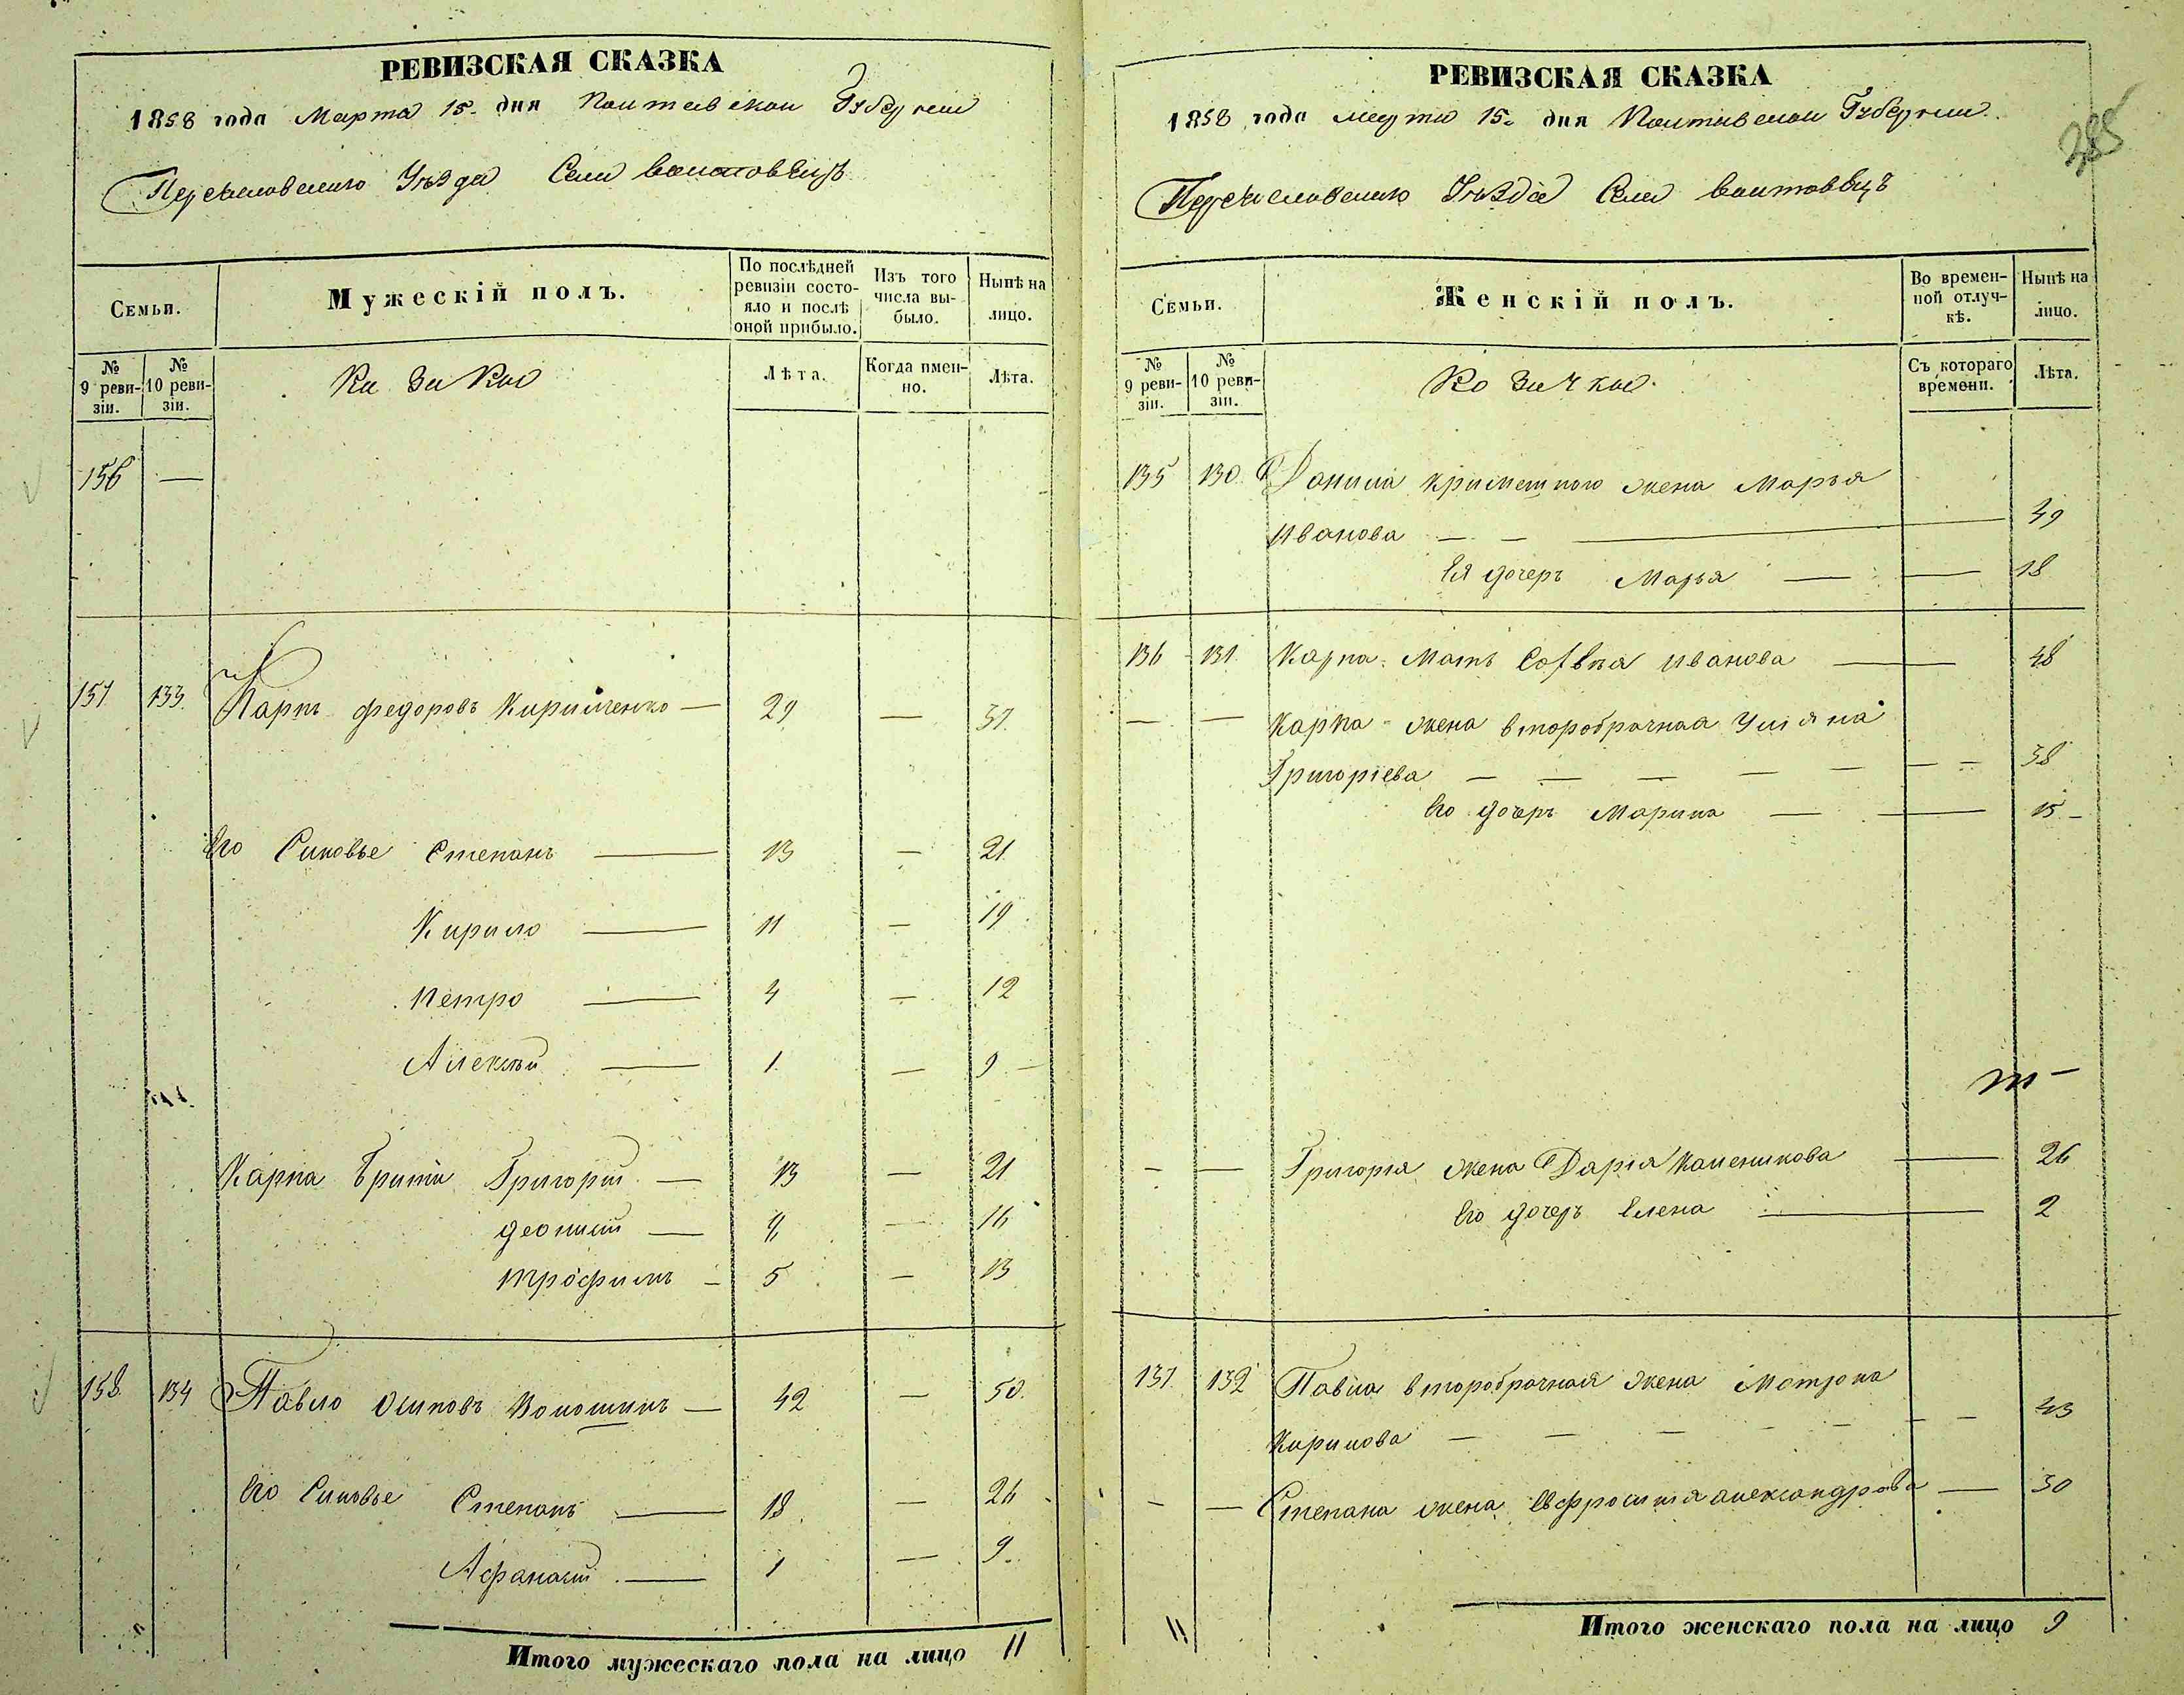 РЕВИЗСКАЯ СКАЗКА
1858 года Марта 15. дня Полтавской Губернии
Переяславского Уѣзда Села Войтовѣцъ
Семьи.
Мужескій полъ.
По послѣдней ревизіи состояло и послѣ оной прибыло.
Изъ того числа выбыло.
Нынѣ на лицо.
№ 9 ревизіи.
№ 10 ревизіи.
Казаки
Лѣта.
Когда имен-но.
Лѣта.
156 —
157 133. Карпъ Федоровъ Кириленко — 29 — 37.
Его Синовье Степанъ — 13 — 21
Кирило — 11 — 19
Петро — 4 — 12
Алексѣй — 1 — 9 —
Карпа Брати Григорій — 13 — 21
Леонтій — 8 — 16
Трофимъ — 5 — 13
158 134 Павло Осиповъ Волошинъ — 42 — 50.
Его Синовье Степанъ — 18 — 26
Афанасій — 1 — 9.
Итого мужескаго пола на лицо 11
РЕВИЗСКАЯ СКАЗКА
1858 года Марта 15. дня Полтавской Губернии.
Переяславского Уѣзда Села Войтовѣцъ
285
Семьи.
Женскій полъ.
Во времен-ной отлуч-кѣ.
Нынѣ на лицо.
№ 9 реви-зіи.
№ 10 реви-зіи.
Козачки.
Съ котораго времени.
Лѣта.
135 130 Данила жена Марья
Иванова — — — 49
Ея дочеръ Марья — — 18
136 131. Карпа Мать Софѣя Иванова — 48
— — Карпа жена второбрачная Уляна
Григоріева — — — — — — — 38
Его дочеръ Марина — — 15 —
— — Григорія жена Дарія — 26
Его дочеръ Елена — 2
137. 132 Павла второбрачная жена Мотрона
Кирилова — — — — — — — 43
— — Степана жена Евфросинія Александрова — 30
11
Итого женскаго пола на лицо 9